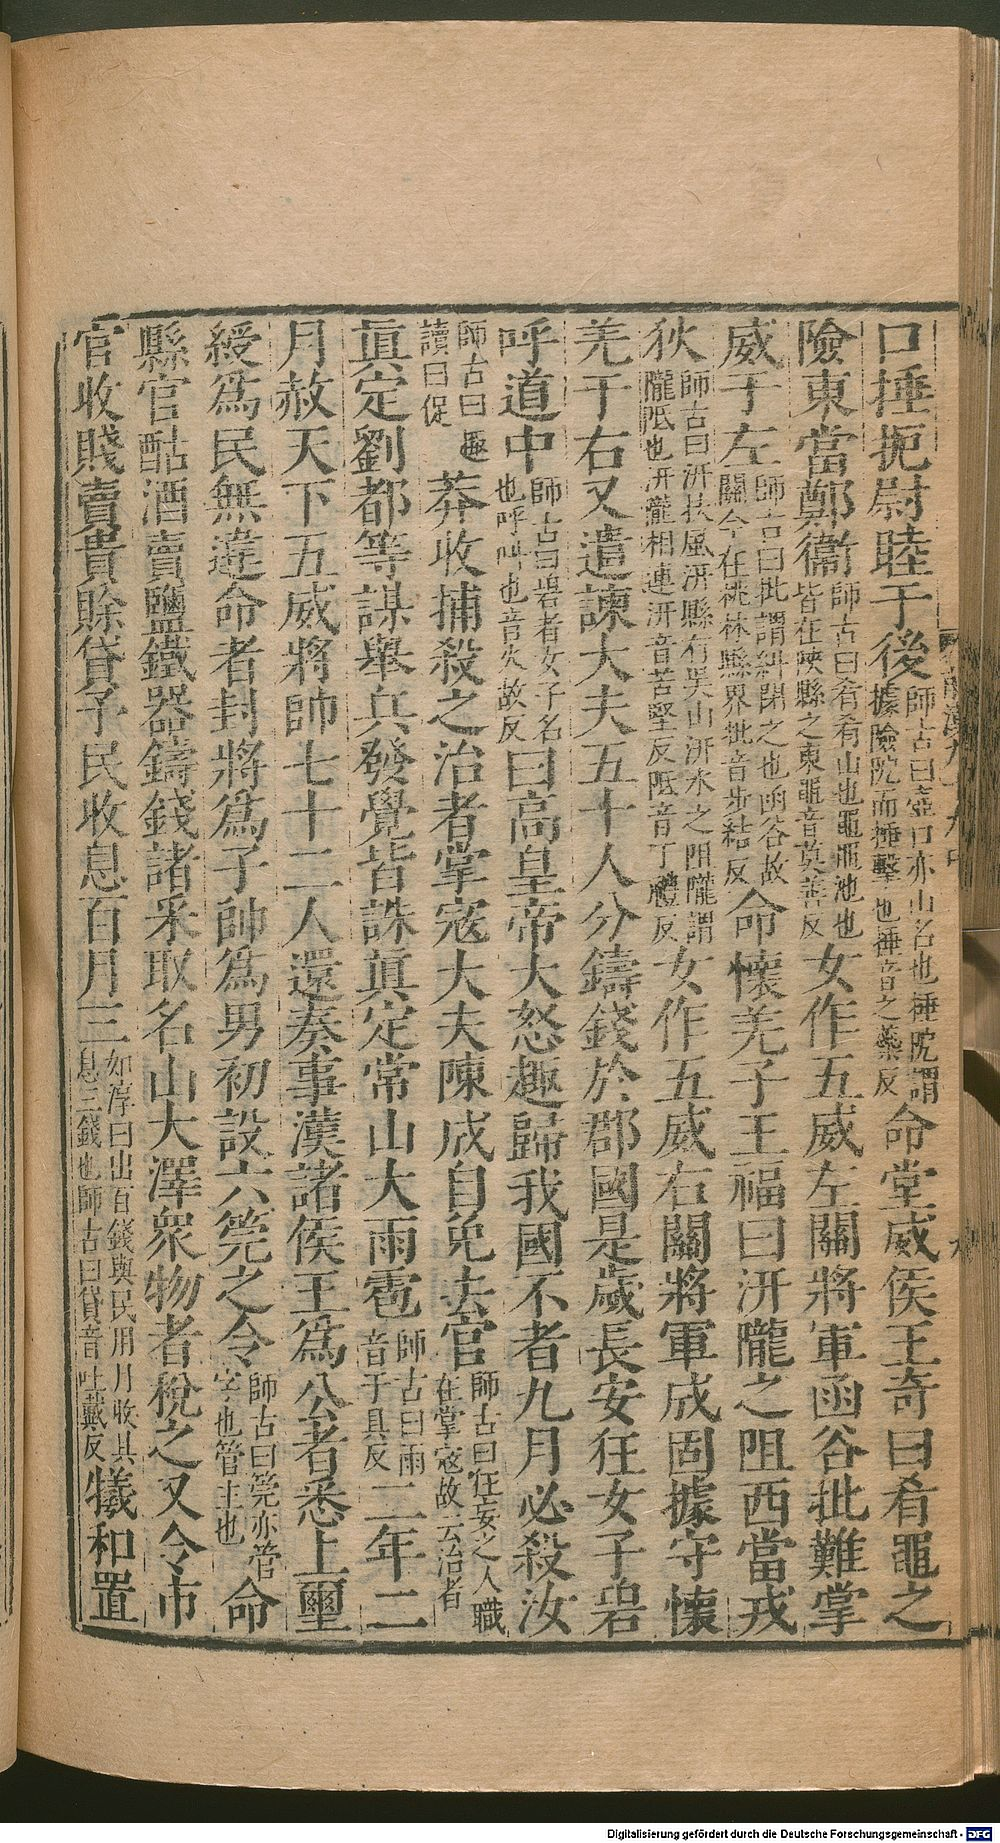 口捶扼尉睦于後師古曰壺口亦山名也捶阸謂據險阸而捶擊也捶音之藥反命堂威侯王奇曰肴黽之
險東當鄭衞師古曰肴肴山也黽黽池也皆在陝縣之東黽音莫善反女作五威左關將軍函谷批難掌
威于左師古曰批謂糾閉之也函谷故關今在桃林縣界批音步結反命懷羌子王福曰汧隴之阻西當戎
狄師古曰汧扶風汧縣有吴山汧水之阻隴謂隴阺也汧隴相連汧音苦堅反阺音丁禮反女作五威右關將軍成固據守懷
羌于右又遣諫大夫五十人分鑄錢於郡國是歲長安狂女子碧
呼道中師古曰碧者女子名也呼叫也音火故反曰高皇帝大怒趣歸我國不者九月必殺汝
師古曰趣讀曰促莽收捕殺之治者掌寇大夫陳成自免去官師古曰狂妄之人職在掌寇故云治者
眞定劉都等謀舉兵發覺皆誅眞定常山大雨雹師古曰雨音于具反二年二
月赦天下五威將帥七十二人還奏事漢諸侯王爲公者悉上璽
綬爲民無違命者封將爲子帥爲男初設六筦之令師古曰筦亦管字也管主也命
縣官酤酒賣鹽鐵器鑄錢諸釆取名山大澤衆物者稅之又令市
官收賤賣貴賒貸予民收息百月三如淳曰出百錢與民用月收其息三錢也師古曰貸音吐戴反犧和置
Digitalisierung gefördert durch die Deutsche Forschungsgemeinschaft - DFG